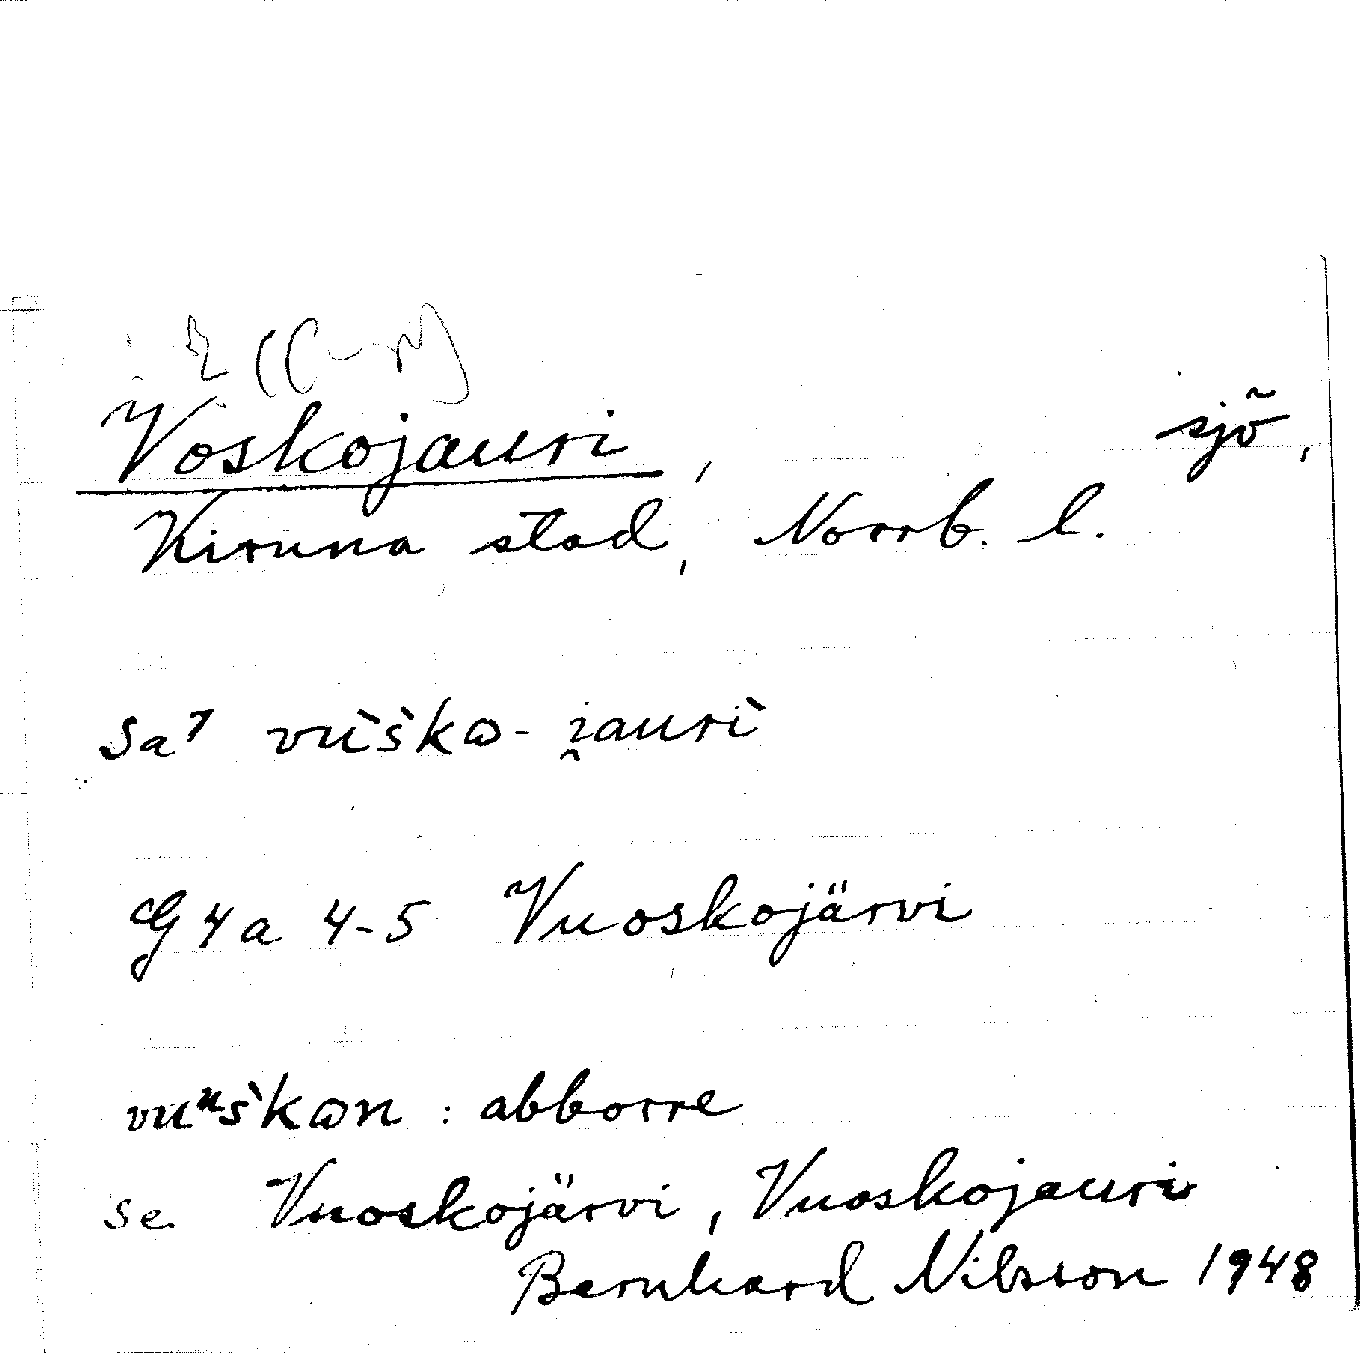 Voskojauri, sjö,
Kiruna stad, Norrb. l.
sa⁷ vùs̀kɷ- i̯aurì
G4a 4-5 Vuoskojärvi
vuᵘs̀kɷn : abborre
se Vuoskojärvi, Vuoskojauri
Bernhard Nilsson 1948